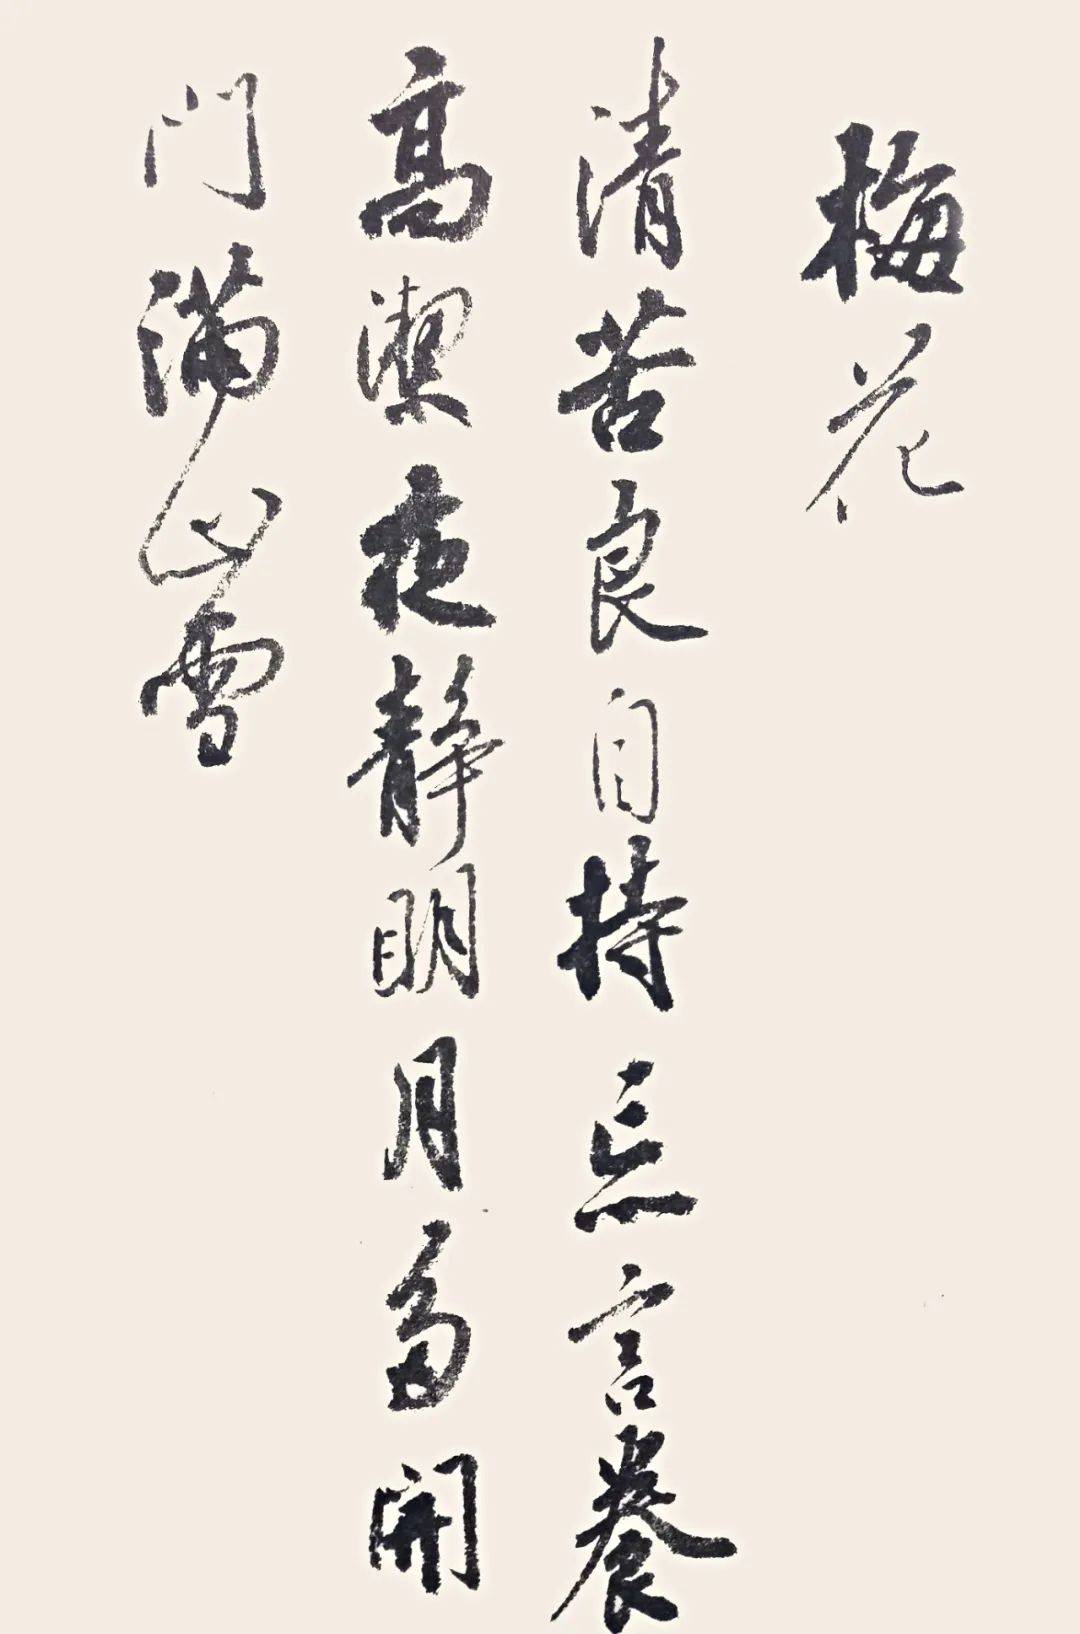 梅花
清苦良自持忘言養
高潔夜静明月開
门滿山雪